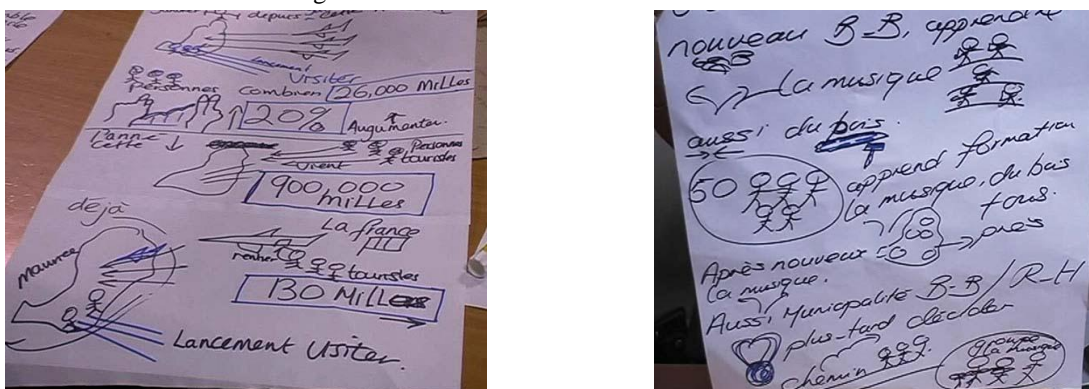 depuis cette
Lancement
visiter
Personnes combien 26,000 Milles
20% Augumenter.
L'anné
cette
Personnes
touristes
900,000
milles
dejà
La france
Maurice
rentrer touristes
130 Milles
Lancement Visiter.
nouveau B-B, apprendre
La musique
aussi du bois.
50 apprend formation
la musique, du bois
tous.
Après nouveaux près
la musique.
Aussi Municipalité B-B / R-H
plus-tard décider
chemin
groupe
la musique